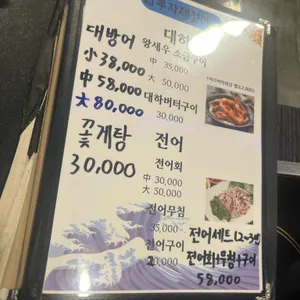 대방어
小 38,000
中 58,000
大 80,000
꽃게탕
30,000
대하
왕새우 소금구이
中 35,000
大 50,000
대하버터구이
30,000
전어
전어회
中 30,000
大 50,000
전어무침
35,000
전어구이
20,000
전어세트 (2~3인)
전어회+무침+구이
58,000